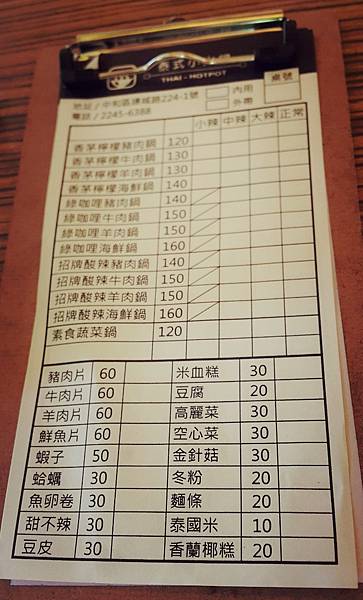 泰式小
THAI - HOTPOT
地址/中和區連城路224-1號
電話/2245-6388
內用
外帶
桌號
小辣 中辣 大辣 正常
香茅檸檬豬肉鍋 120
香茅檸檬牛肉鍋 130
香茅檸檬羊肉鍋 130
香茅檸檬海鮮鍋 140
綠咖哩豬肉鍋 140
綠咖哩牛肉鍋 150
綠咖哩羊肉鍋 150
綠咖哩海鮮鍋 160
招牌酸辣豬肉鍋 140
招牌酸辣牛肉鍋 150
招牌酸辣羊肉鍋 150
招牌酸辣海鮮鍋 160
素食蔬菜鍋 120
豬肉片 60 米血糕 30
牛肉片 60 豆腐 20
羊肉片 60 高麗菜 30
鮮魚片 60 空心菜 30
蝦子 50 金針菇 30
蛤蠣 30 冬粉 20
魚卵卷 30 麵條 20
甜不辣 30 泰國米 10
豆皮 30 香蘭椰糕 20